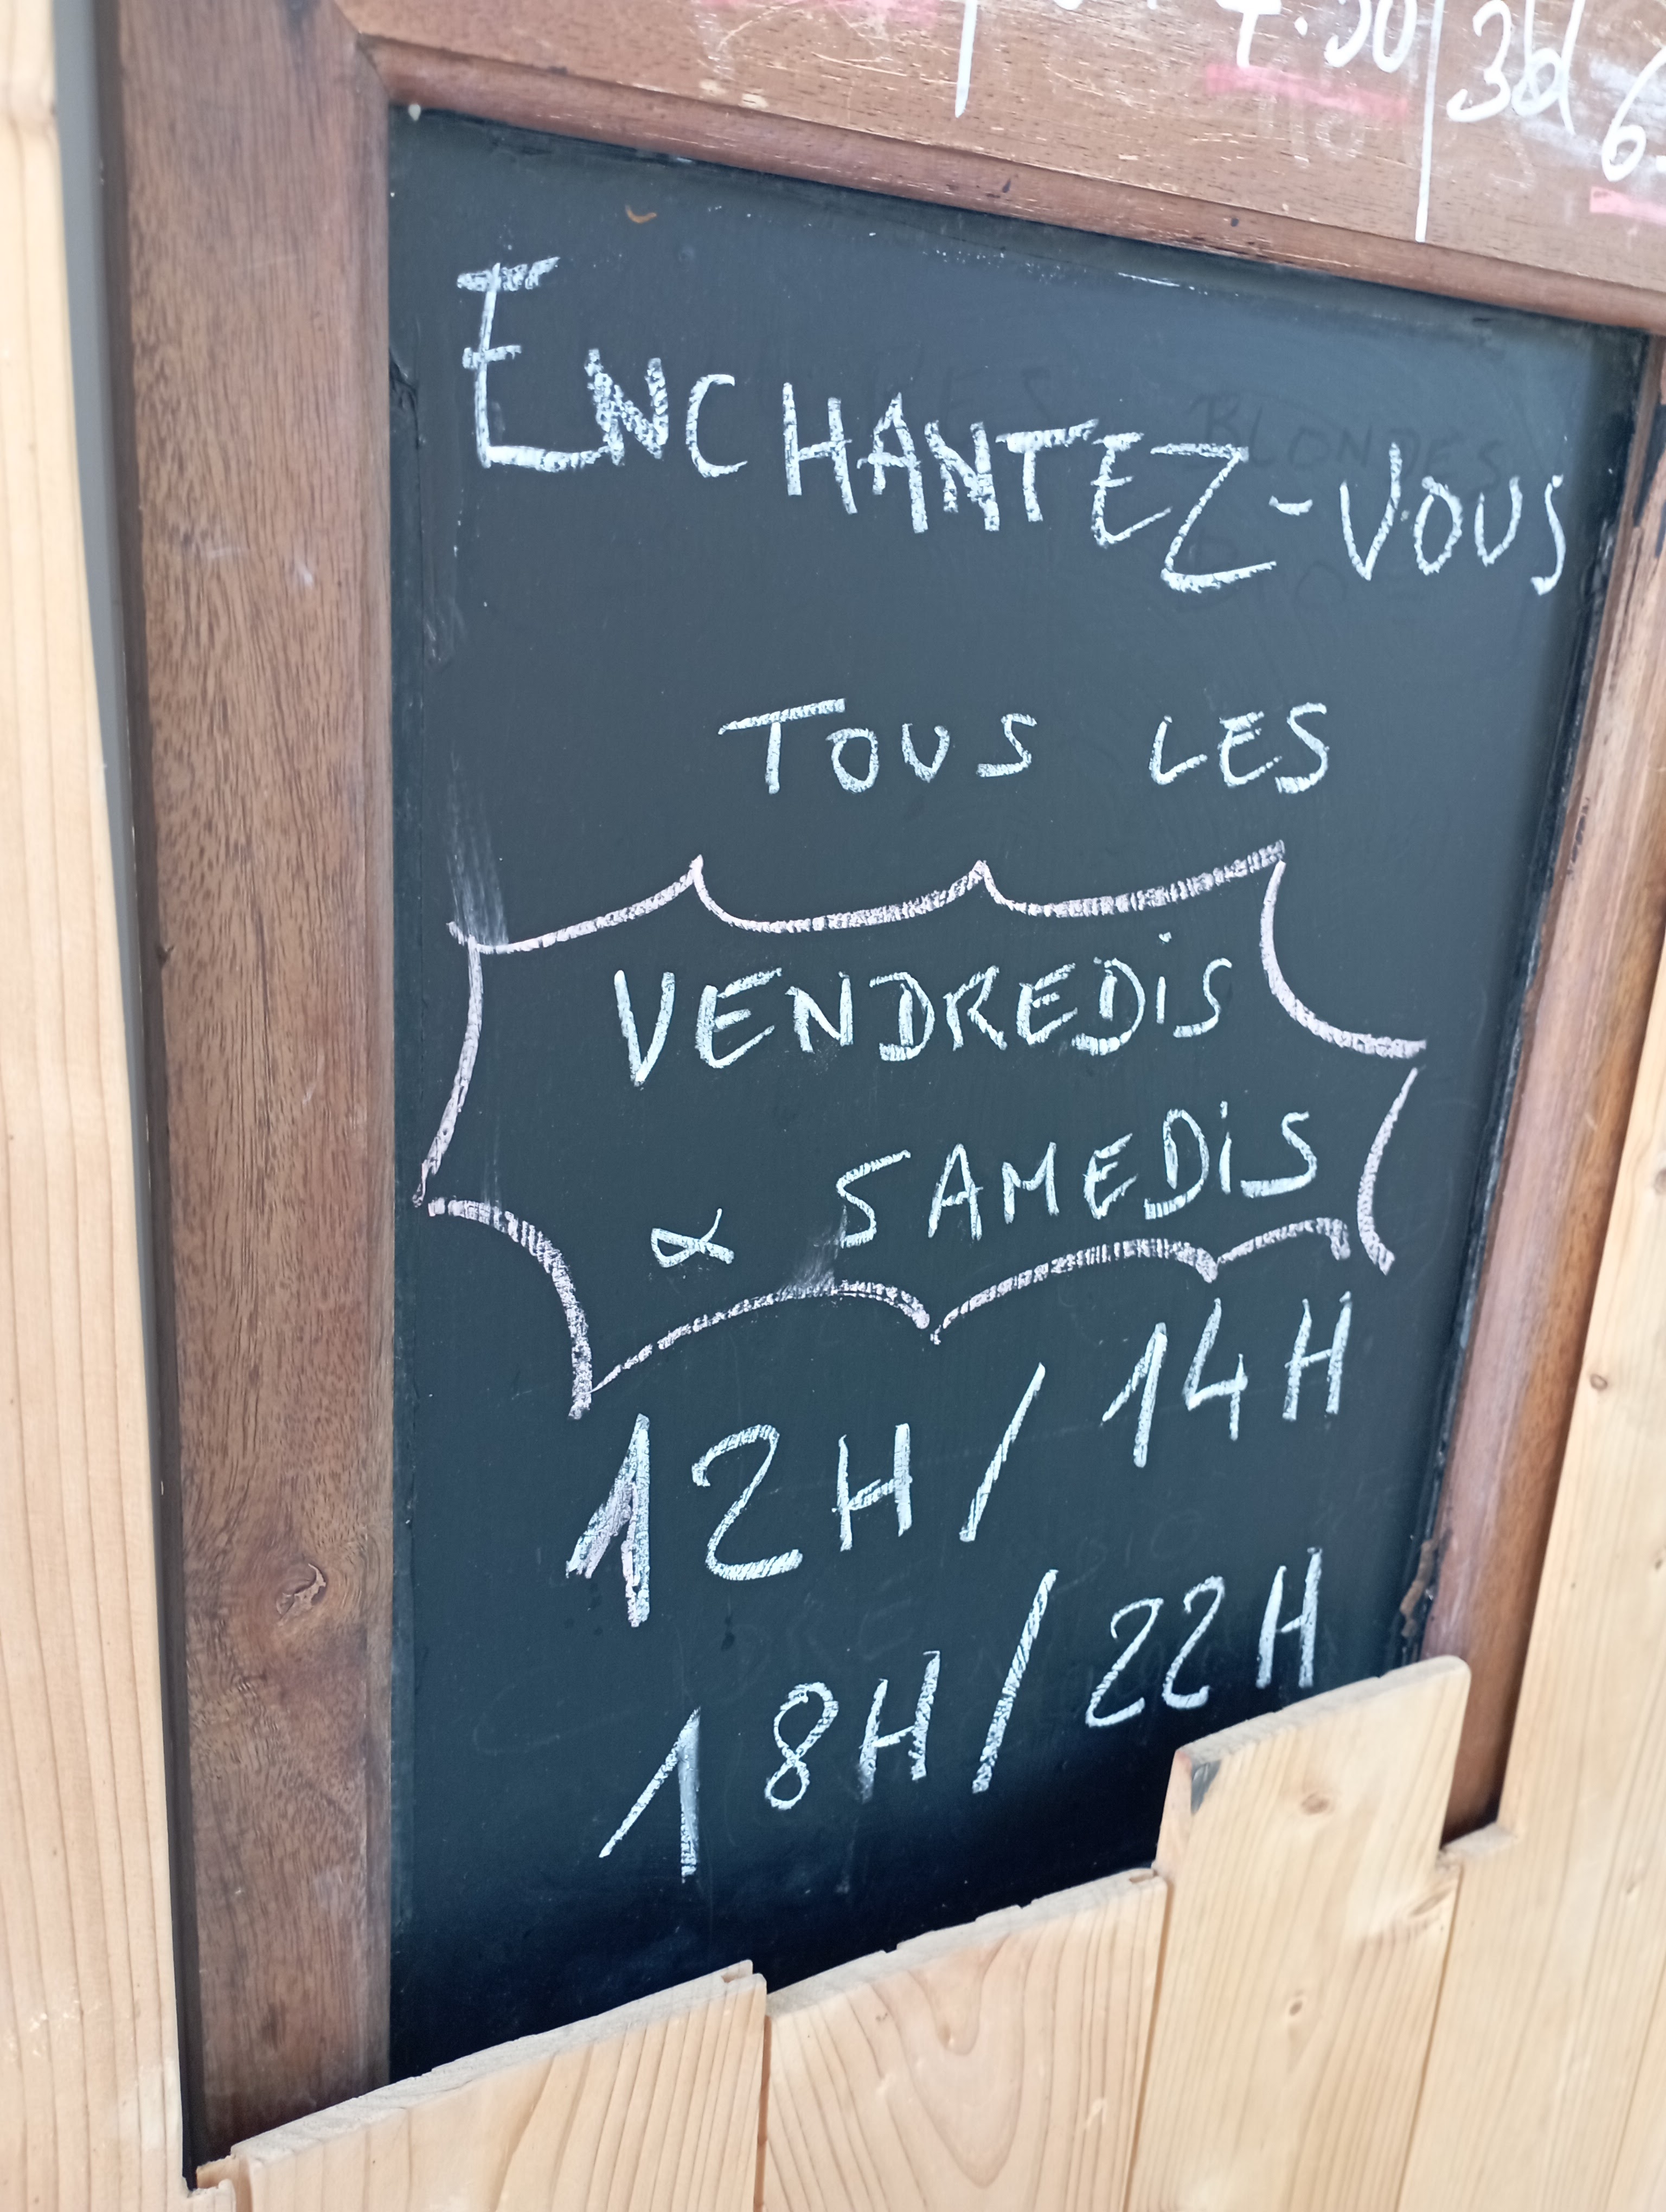 30 | 3d
ENCHANTEZ-VOUS
TOUS LES
VENDREDiS
& SAMEDiS
12H/14H
18H/22H